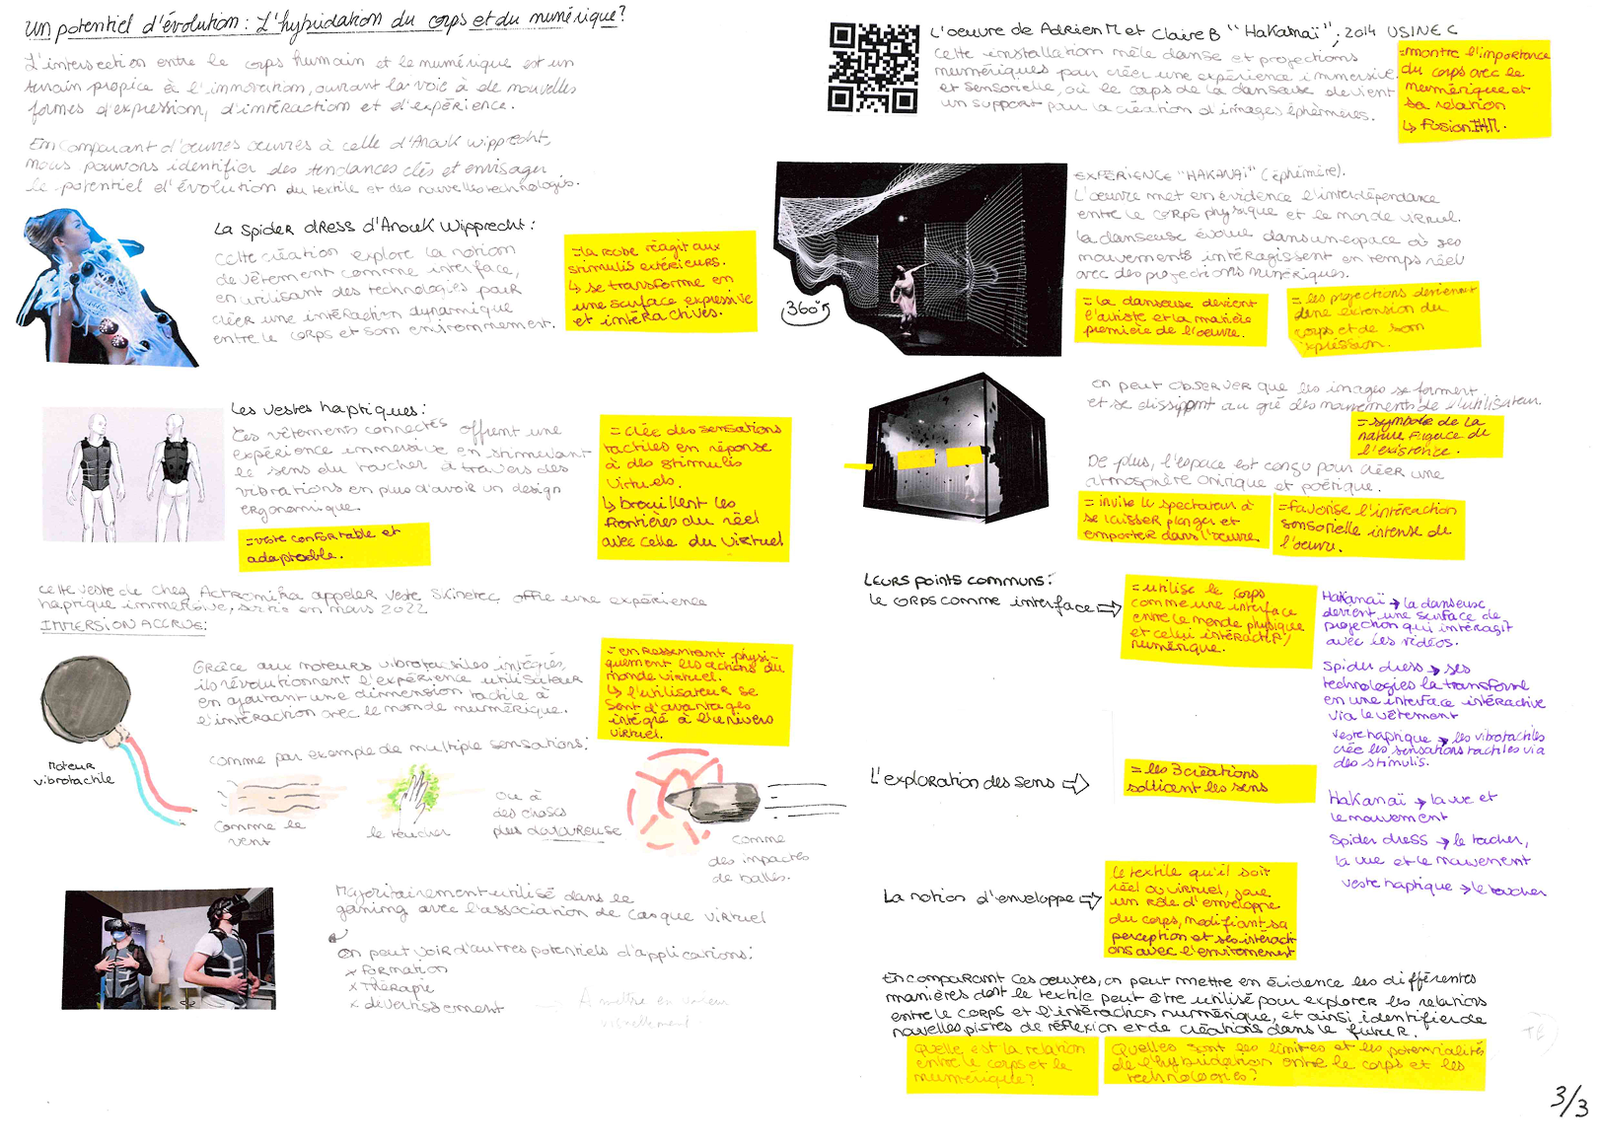 Un potentiel d'évolution : L'hybridation du corps et du numérique?
L'intersection entre le corps humain et le numérique est un
terrain propice à l'innovation, ouvrant la voie à de nouvelles
formes d'expression, d'intéraction et d'expérience.
En comparant d'oeuvres oeuvres à celle d'Anouk Wipprecht,
nous pouvons identifier des tendances clés et envisager
le potentiel d'évolution du textile et des nouvelles technologies.
La spider dress d'Anouk Wipprecht :
Cette création explore la notion
de vêtement comme interface,
en utilisant des technologies pour
créer une intéraction dynamique
entre le corps et son environnement.
= la robe réagit aux
stimulis extérieurs.
↳ se transforme en
une surface expressive
et intéractives.
Les vestes haptiques :
Ces vêtements connectés offrent une
expérience immersive en stimulant
le sens du toucher à travers des
vibrations en plus d'avoir un design
ergonomique.
= veste confortable et
adaptable.
= crée des sensations
tactiles en réponse
à des stimulis
virtuels.
↳ brouillent les
frontières du réel
avec celle du virtuel
Cette veste de chez Actronika appeler veste Skinetic offre une expérience
haptique immersive, sortie en mars 2022
IMMERSION ACCRUE :
Grâce aux moteurs vibrotactiles intégrés,
ils révolutionnent l'expérience utilisateur
en ajoutant une dimension tactile à
l'intéraction avec le monde numérique.
= en ressentant physi-
quement les actions du
monde virtuel.
↳ l'utilisateur se
sent d'avantages
intégré à l'univers
virtuel.
comme par exemple de multiple sensations :
Moteur
vibrotactile
comme le
vent
le toucher
ou à
des choses
plus douloureuse
comme
des impacts
de balles.
Majoritairement utilisé dans le
gaming avec l'association de casque virtuel
On peut voir d'autres potentiels d'applications :
x Formation
x Thérapie
x divertissement
→ A mettre en valeur
visuellement
L'oeuvre de Adrien M et Claire B "Hakanaï", 2014 USINE C
Cette installation mêle danse et projections
numériques pour créer une expérience immersive
et sensorielle, où le corps de la danseuse devient
un support pour la création d'images éphémères.
= montre l'importance
du corps avec le
numérique et
sa relation
↳ Fusion IHM.
360°
EXPÉRIENCE "HAKANAÏ" (éphémère).
L'oeuvre met en évidence l'interdépendance
entre le corps physique et le monde virtuel.
La danseuse évolue dans un espace où ses
mouvements intéragissent en temps réel
avec des projections numériques.
= la danseuse devient
l'artiste et la matière
première de l'oeuvre.
= les projections deviennent
d'une extension du
corps et de son
expression.
On peut observer que les images se forment
et se dissipent au gré des mouvements de l'utilisateur.
= symbole de la
nature fugace de
l'existence.
De plus, l'espace est conçu pour créer une
atmosphère onirique et poétique.
= invite le spectateur à
se laisser plonger et
emporter dans l'oeuvre.
= favorise l'intéraction
sensorielle intense de
l'oeuvre.
Leurs points communs :
Le corps comme interface ⇨
= utilise le corps
comme une interface
entre le monde physique
et celui intéractif/
numérique.
Hakanaï → la danseuse
devient une surface de
projection qui intéragit
avec les vidéos.
Spider dress → ses
technologies la transforme
en une interface intéractive
via le vêtement
Veste haptique → les vibrotactiles
crée les sensations tactiles via
des stimulis.
L'exploration des sens ⇨
= les 3 créations
sollicitent les sens
Hakanaï → la vue et
le mouvement
Spider dress → le toucher,
la vue et le mouvement
veste haptique → le toucher
La notion d'enveloppe ⇨
Le textile qu'il soit
réel ou virtuel, joue
un rôle d'enveloppe
du corps, modifiant sa
perception et ses intéracti
ons avec l'environnement
En comparant ces oeuvres, on peut mettre en évidence les différentes
manières dont le textile peut être utilisé pour explorer les relations
entre le corps et l'intéraction numérique, et ainsi identifier de
nouvelles pistes de réflexion et de créations dans le futur.
Quelle est la relation
entre le corps et le
numérique?
Quelles sont les limites et les potentialités
de l'hybridation entre le corps et les
technologies?
TB
3/3